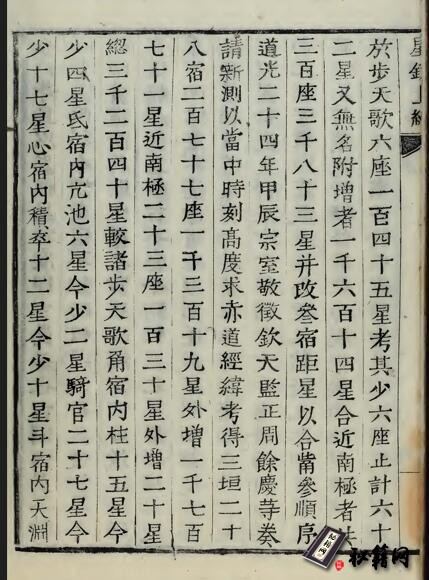 於步天歌六座一百四十五星考其少六座止計六十
二星又無名附增者一千六百十四星合近南極者共
三百座三千八十三星并改參宿距星以合觜參順序
道光二十四年甲辰宗室敬徵欽天監正周餘慶等奏
請新測以當中時刻高度求赤道經緯考得三垣二十
八宿二百七十七座一千三百十九星外增一千七百
七十一星近南極二十三座一百三十星外增二十星
總三千二百四十星較諸步天歌角宿內柱十五星今
少四星氐宿內亢池六星今少二星騎官二十七星今
少十七星心宿內積卒十二星今少十星斗宿內天淵
秘籍网